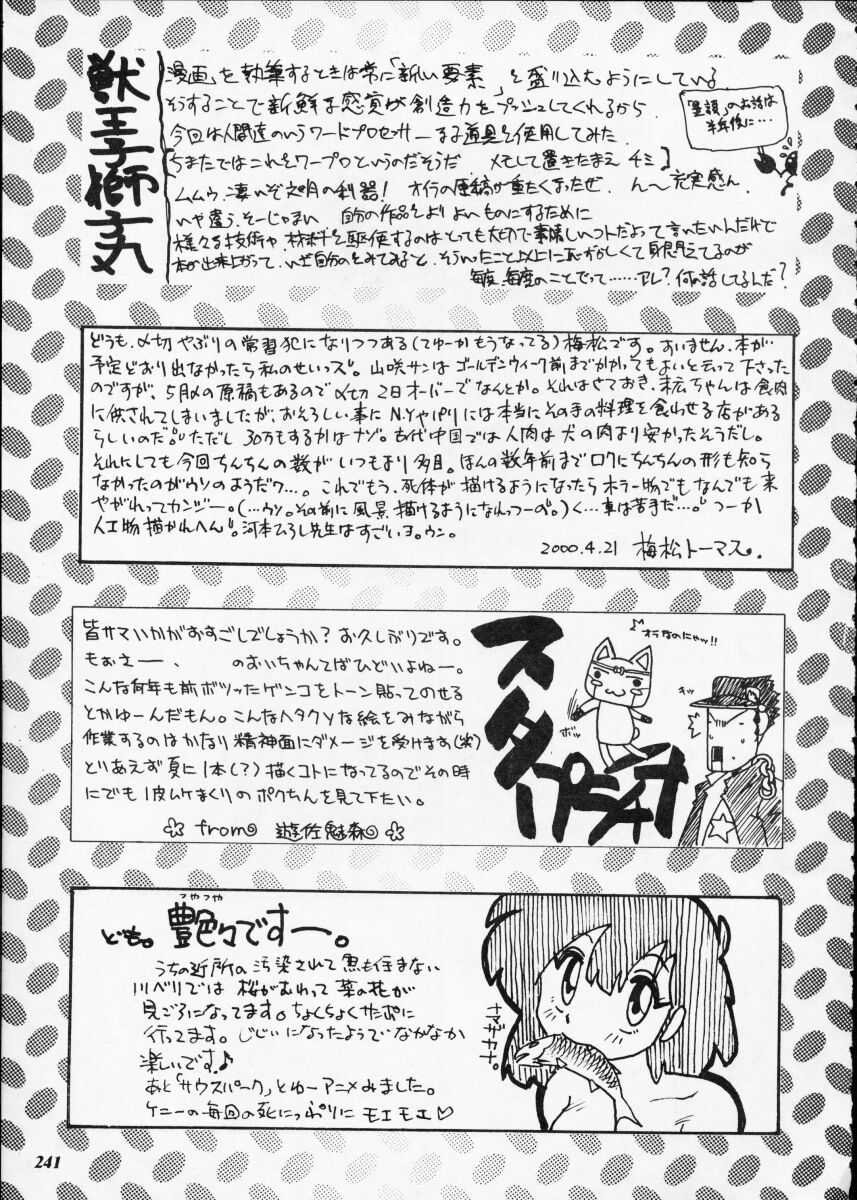 獣王子獅子丸
「漫画」を執筆するときは常に「新しい要素」を盛り込むようにしている
そうすることで新鮮な感覚が創造力をプッシュしてくれるから.
今回は人間達のいうワードプロセッサーなる道具を使用してみた.
[ちまたではこれをワープロというのだそうだ メモして置きたまえ チミ]
ムムウ、凄いぞ文明の利器! オイラの原稿が重たくなったぜ. ん〜充実感ん.
いや違う、そーじゃない 自分の作品をよりよいものにするために
様々な技術や材料を駆使するのはとっても大切で素晴しいコトだよって言いたいんだけど
本が出来上がって、いざ自分のをみてみると、そういったこと以上に恥ずかしくて身悶えてるのが
毎度毎度のことでって……アレ?何の話してるんだ?
のお話は
半年後に…
どうも、〆切やぶりの常習犯になりつつある(てゆーかもうなってる)梅松です。すいません、本が…
予定どおり出なかったら私のせいっス゛。山咲サンはゴールデンウィーク前までかかってもよいと云って下さった
のですが、5月〆の原稿もあるので〆切2日オーバーでなんとか。それはさておき、ちゃんは食肉
に供されてしまいましたが、おそろしい事にN.Yやパリには本当にそのまの料理を食わせる店がある
らしいのだ。ただし30万もするかはナゾ。古代中国では人肉は犬の肉より安かったそうだし。
それにしても今回ちんちんの数がいつもより多目。ほんの数年前までロクにちんちんの形も知ら
なかったのがウソのようだワ…。これでもう、死体が描けるようになったらホラー物でもなんでも来
やがれってカンジー。(…ウン。その前に風景描けるようになれっつーの゛。)く…車は苦手だ…。つーか
人工物描かれへん゛。河本ひろし先生はすごいヨ。ウン。
2000.4.21 梅松トーマス。
皆サマいかがおすごしでしょうか?お久しぶりです。
もぉえー、 のおいちゃんてばひどいよねー。
こんな何年も前ボツったゲンコをトーン貼ってのせる
とかゆーんだもん。こんなヘタクソな絵をみながら
作業するのはかなり精神面にダメージを受けます(笑)
とりあえず夏に1本(?)描くコトになってるのでその時
にでも1皮ムケまくりのボクちんを見て下たい。
☆from◎ 遊佐魅森◎☆
スタープラチナ
♪オラなのにゃッ!!
ども。艶々ですー。
つやつや
うちの近所の汚染されて魚も住まない
川べりでは 桜がおわって菜の花が
見ごろになってます。ちょくちょくさんぽに
行ってます。じじぃになったようでなかなか
楽しいです♪
あと「サウスパーク」とゆーアニメみました。
ケニーの毎回の死にっぷりにモエモエ♡
ナマザカナ。
241